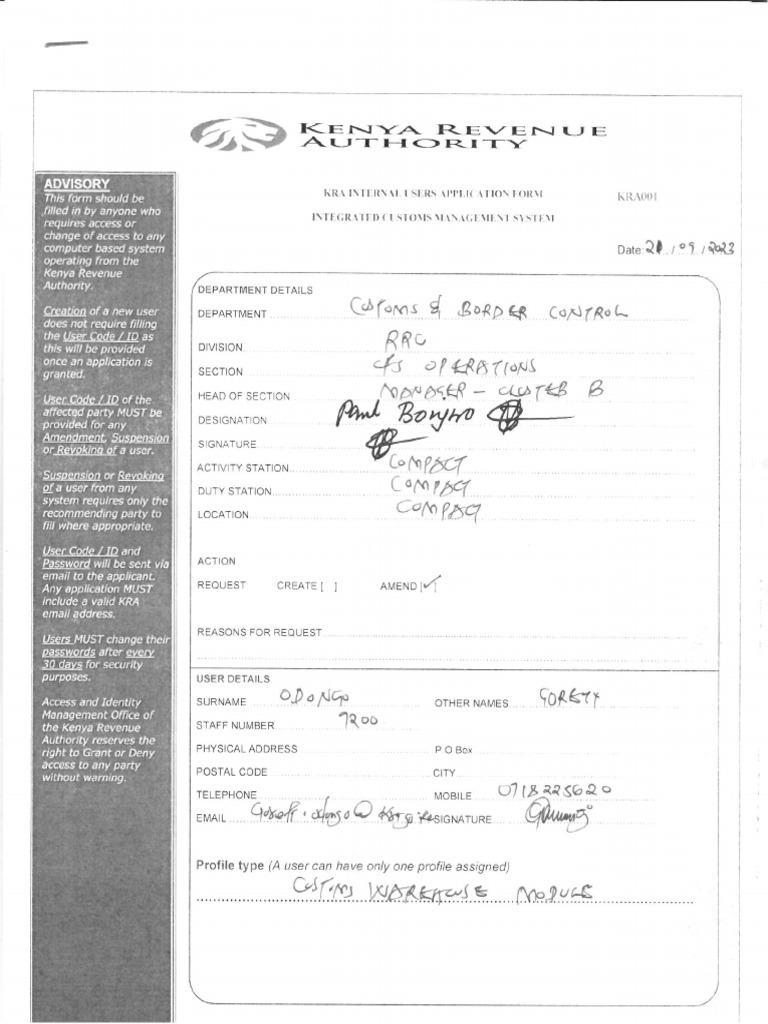 KENYA REVENUE
AUTHORITY
ADVISORY
This form should be
filled in by anyone who
requires access or
change of access to any
computer based system
operating from the
Kenya Revenue
Authority.
Creation of a new user
does not require filling
the User Code / ID as
this will be provided
once an application is
granted.
User Code / ID of the
affected party MUST be
provided for any
Amendment, Suspension
or Revoking of a user.
Suspension or Revoking
of a user from any
system requires only the
recommending party to
fill where appropriate.
User Code / ID and
Password will be sent via
email to the applicant.
Any application MUST
include a valid KRA
email address.
Users MUST change their
passwords after every
30 days for security
purposes.
Access and Identity
Management Office of
the Kenya Revenue
Authority reserves the
right to Grant or Deny
access to any party
without warning.
KRA INTERNAL USERS APPLICATION FORM KRA001
INTEGRATED CUSTOMS MANAGEMENT SYSTEM
Date: 21 / 09 / 2023
DEPARTMENT DETAILS
DEPARTMENT CUSTOMS & BORDER CONTROL
DIVISION RRC
SECTION CFS OPERATIONS
HEAD OF SECTION MANAGER - CLUSTER B
DESIGNATION Paul
SIGNATURE
ACTIVITY STATION COMPACT
DUTY STATION COMPACT
LOCATION COMPACT
ACTION
REQUEST CREATE [ ] AMEND [✓]
REASONS FOR REQUEST
USER DETAILS
SURNAME ODONGO OTHER NAMES GORETY
STAFF NUMBER 7200
PHYSICAL ADDRESS P O Box
POSTAL CODE CITY
TELEPHONE MOBILE 0718225620
EMAIL SIGNATURE
Profile type (A user can have only one profile assigned)
CUSTOMS WAREHOUSE MODULE